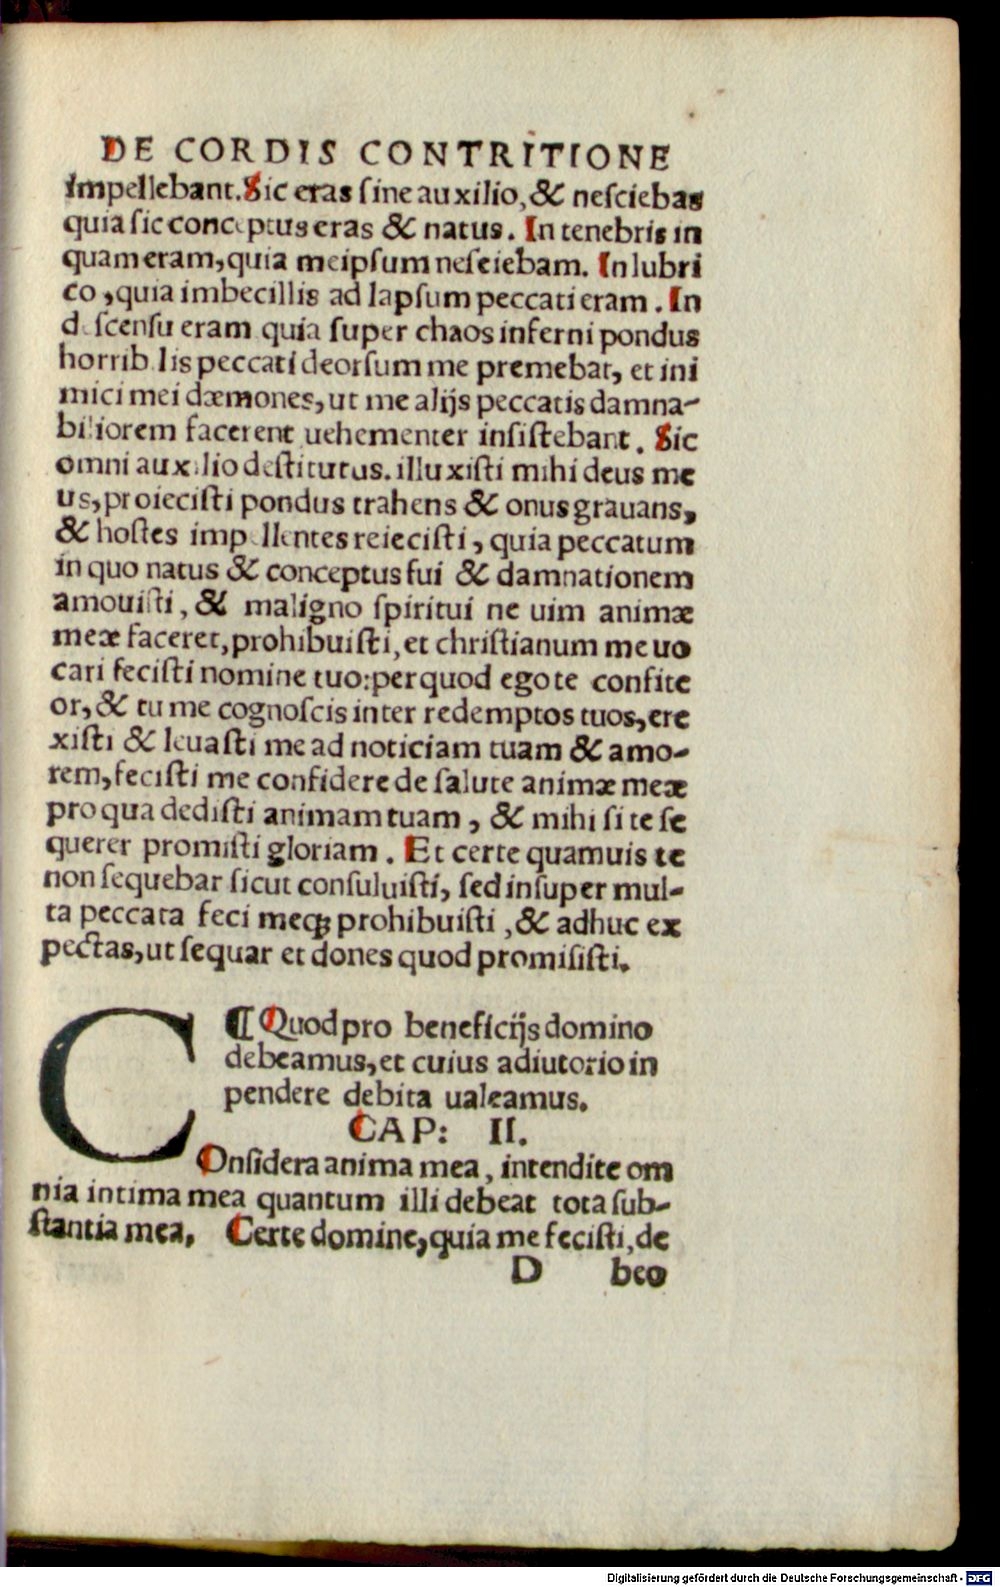 DE CORDIS CONTRITIONE
impellebant. Sic eras ſine auxilio, & neſciebas
quia ſic conceptus eras & natus. In tenebris in
quam eram, quia meipſum neſciebam. In lubri
co, quia imbecillis ad lapſum peccati eram. In
deſcenſu eram quia ſuper chaos inferni pondus
horribilis peccati deorſum me premebat, et ini
mici mei dæmones, ut me alijs peccatis damna-
biliorem facerent uehementer inſiſtebant. Sic
omni auxilio deſtitutus. illuxiſti mihi deus me
us, proieciſti pondus trahens & onus grauans,
& hoſtes impellentes reieciſti, quia peccatum
in quo natus & conceptus fui & damnationem
amouiſti, & maligno ſpiritui ne uim animæ
meæ faceret, prohibuiſti, et chriſtianum me uo
cari feciſti nomine tuo: per quod ego te confite
or, & tu me cognoſcis inter redemptos tuos, ere
xiſti & leuaſti me ad noticiam tuam & amo-
rem, feciſti me confidere de ſalute animæ meæ
pro qua dediſti animam tuam, & mihi ſi te ſe
querer promiſti gloriam. Et certe quamuis te
non ſequebar ſicut conſuluiſti, ſed inſuper mul-
ta peccata feci meqꝫ prohibuiſti, & adhuc ex
pectas, ut ſequar et dones quod promiſiſti.
¶ Quod pro beneficijs domino
debeamus, et cuius adiutorio in
pendere debita ualeamus.
CAP: II.
COnſidera anima mea, intendite om
nia intima mea quantum illi debeat tota ſub-
ſtantia mea. Certe domine, quia me feciſti, de
D beo
Digitalisierung gefördert durch die Deutsche Forschungsgemeinschaft - DFG